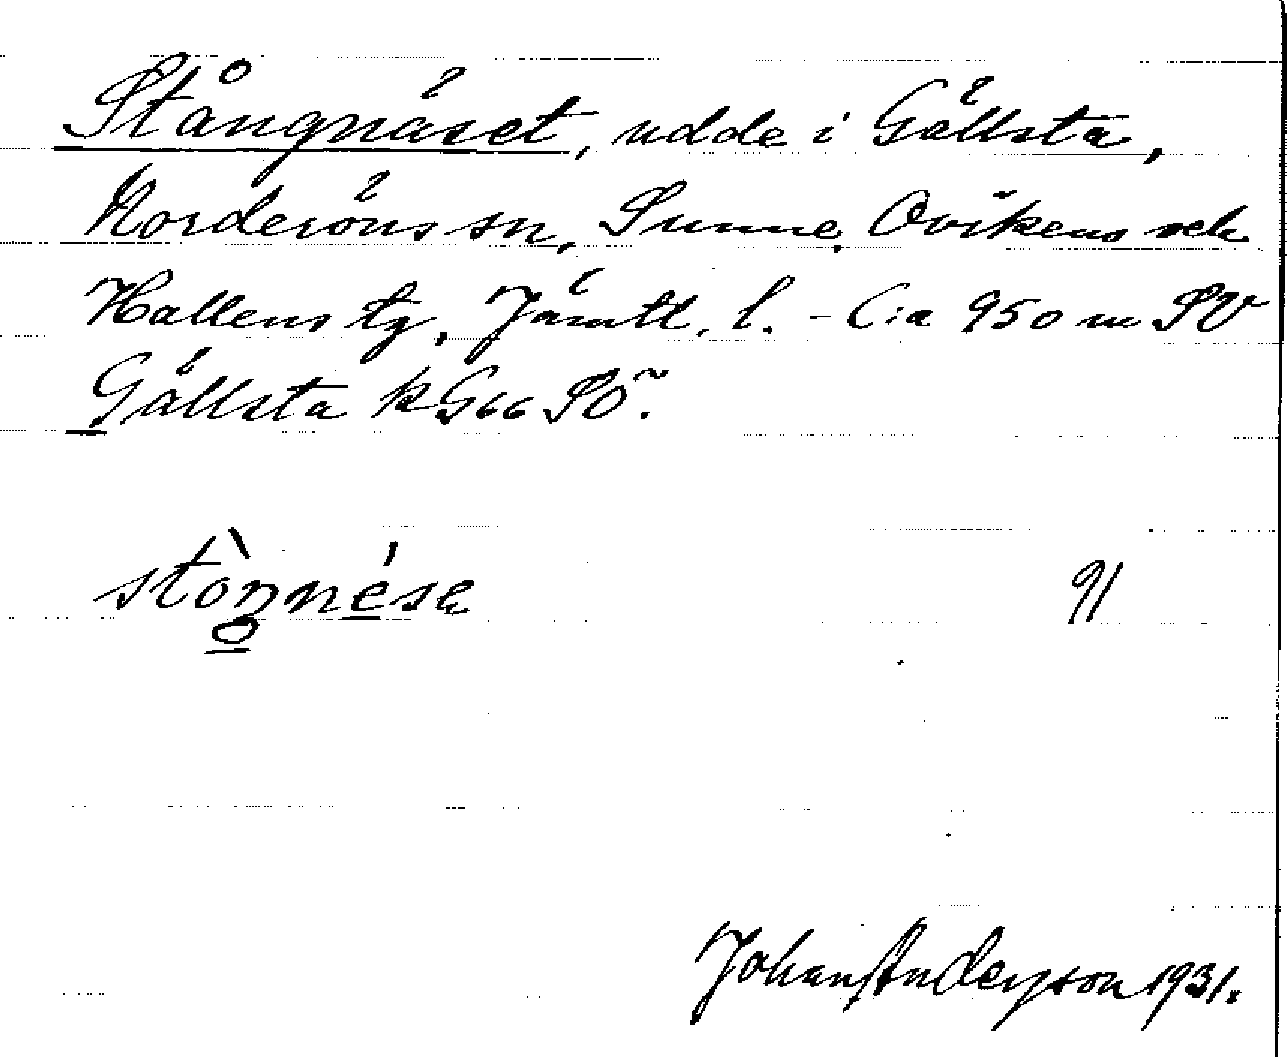 Stångnäset, udde i Gällsta,
Norderöns sn, Sunne, Ovikens och
Hallens tg, Jämtl. l. - C:a 950 m SV
Gällsta k G66 SÖ.
91
Johan Anderson 1931.